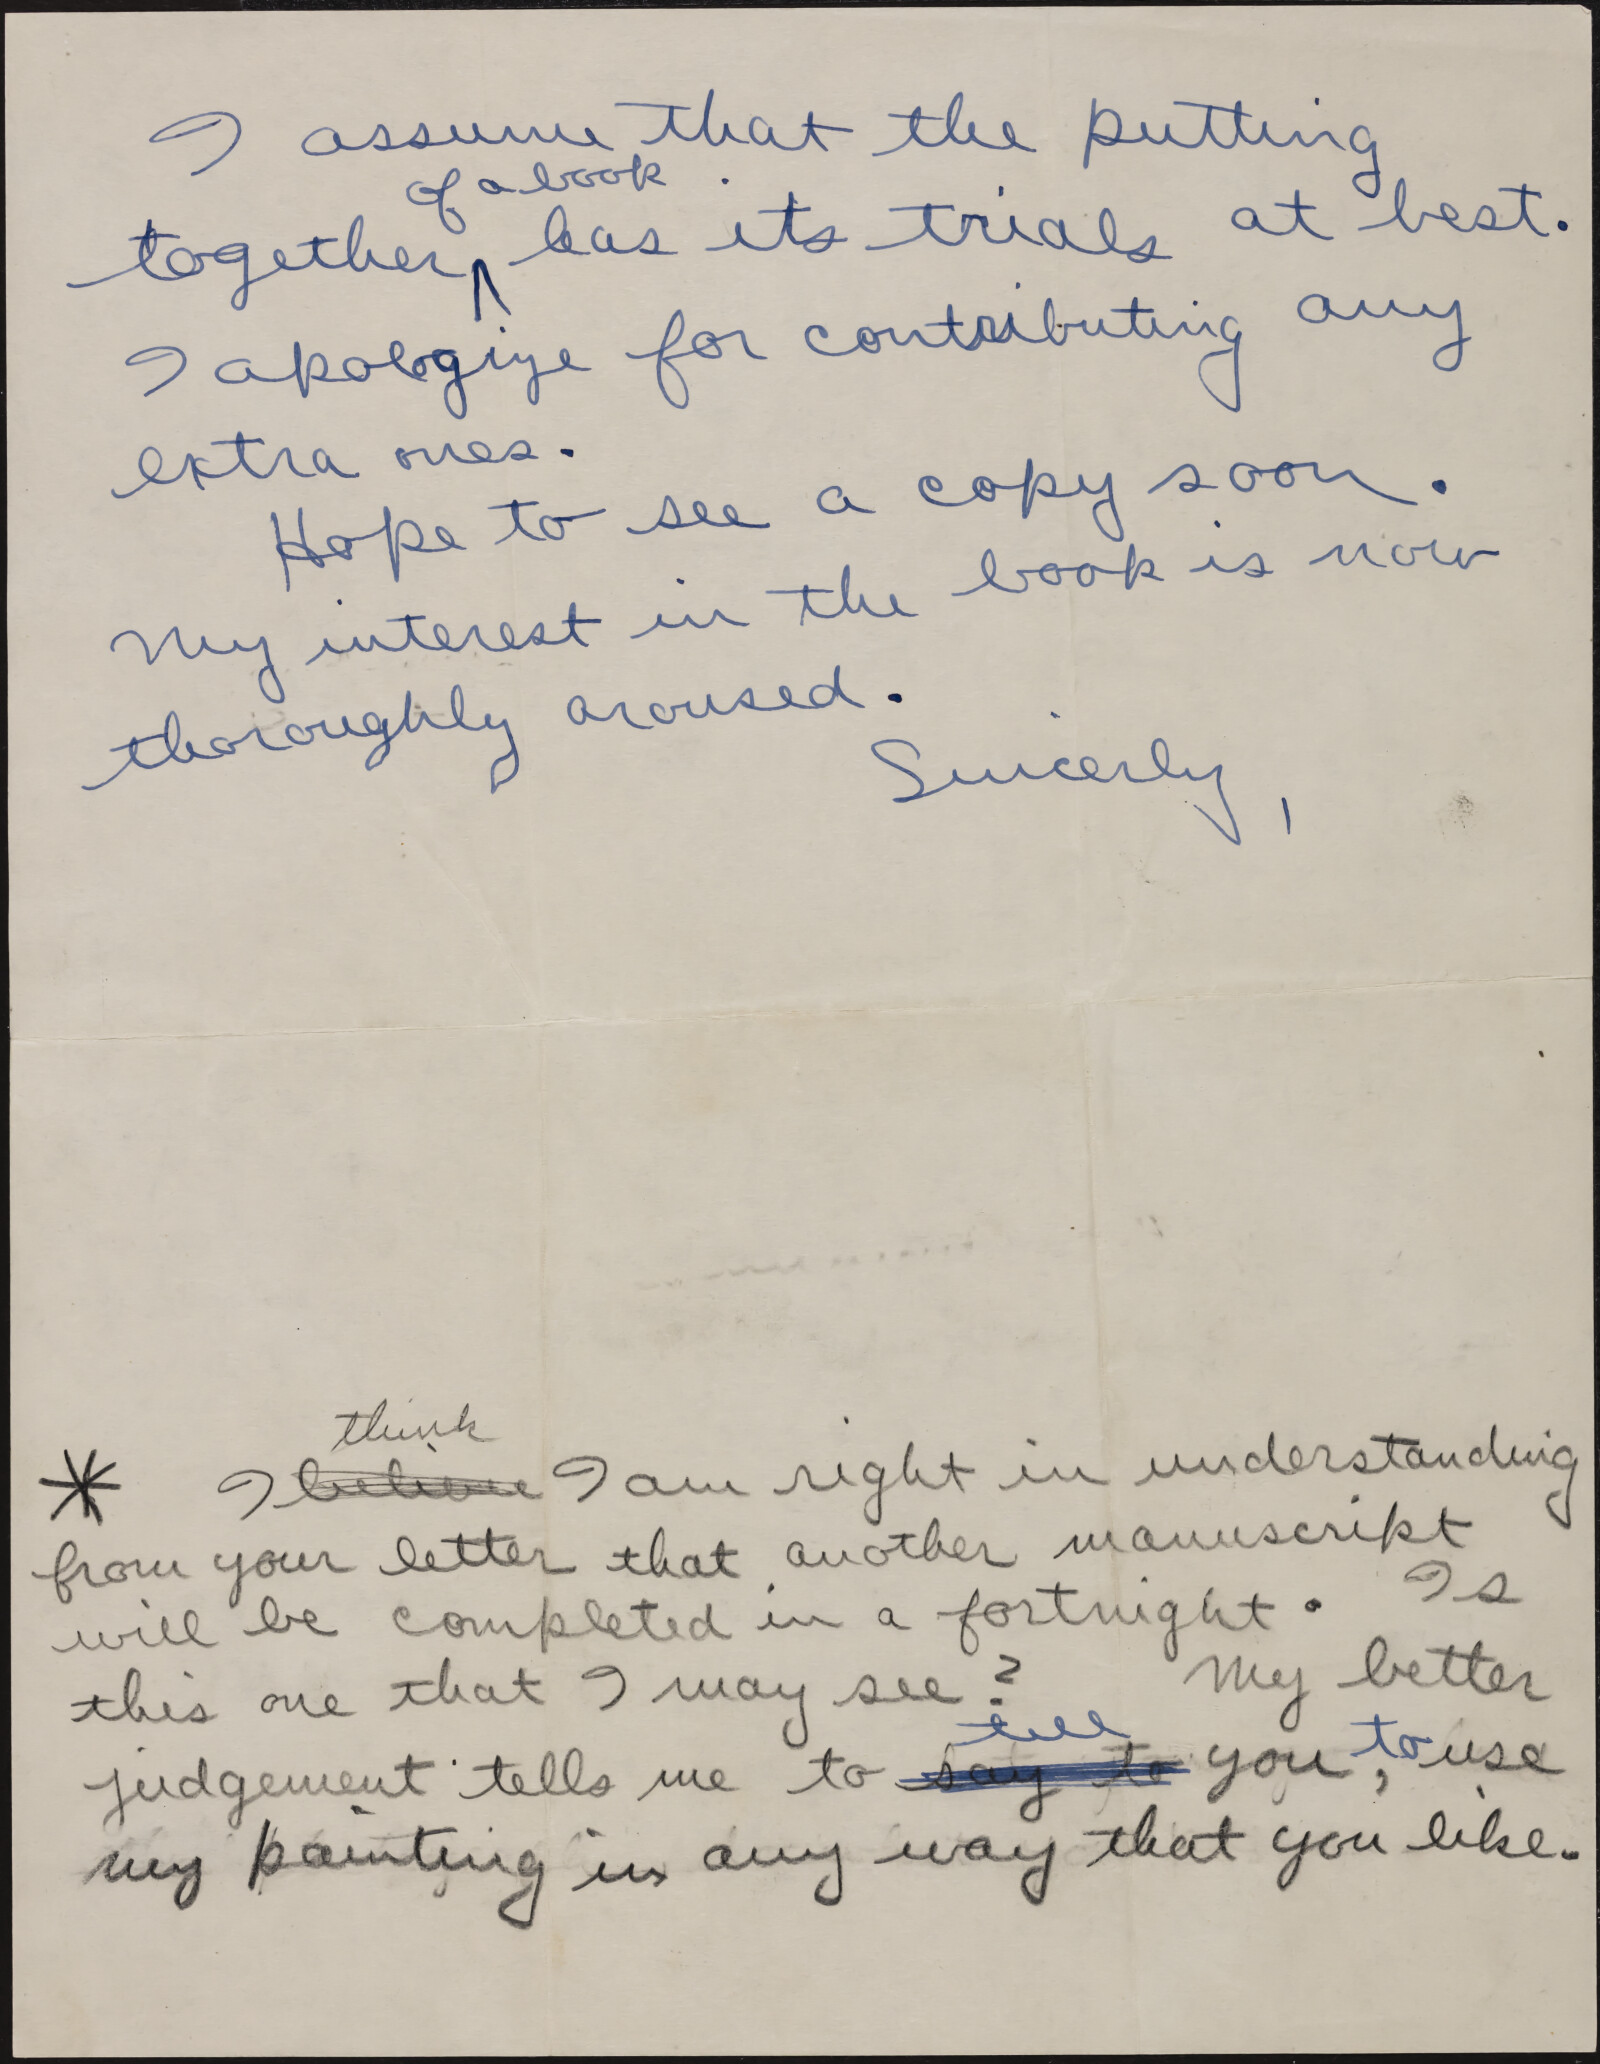 I assume that the putting
of a book
together ∧ has its trials at best.
I apologize for contributing any
extra ones.
Hope to see a copy soon.
My interest in the book is now
thoroughly aroused.
Sincerly,
think
* I believe I am right in understanding
from your letter that another manuscript
will be completed in a fortnight. Is
this one that I may see? My better
tell
judgement tells me to say to you, to use
my painting in any way that you like.